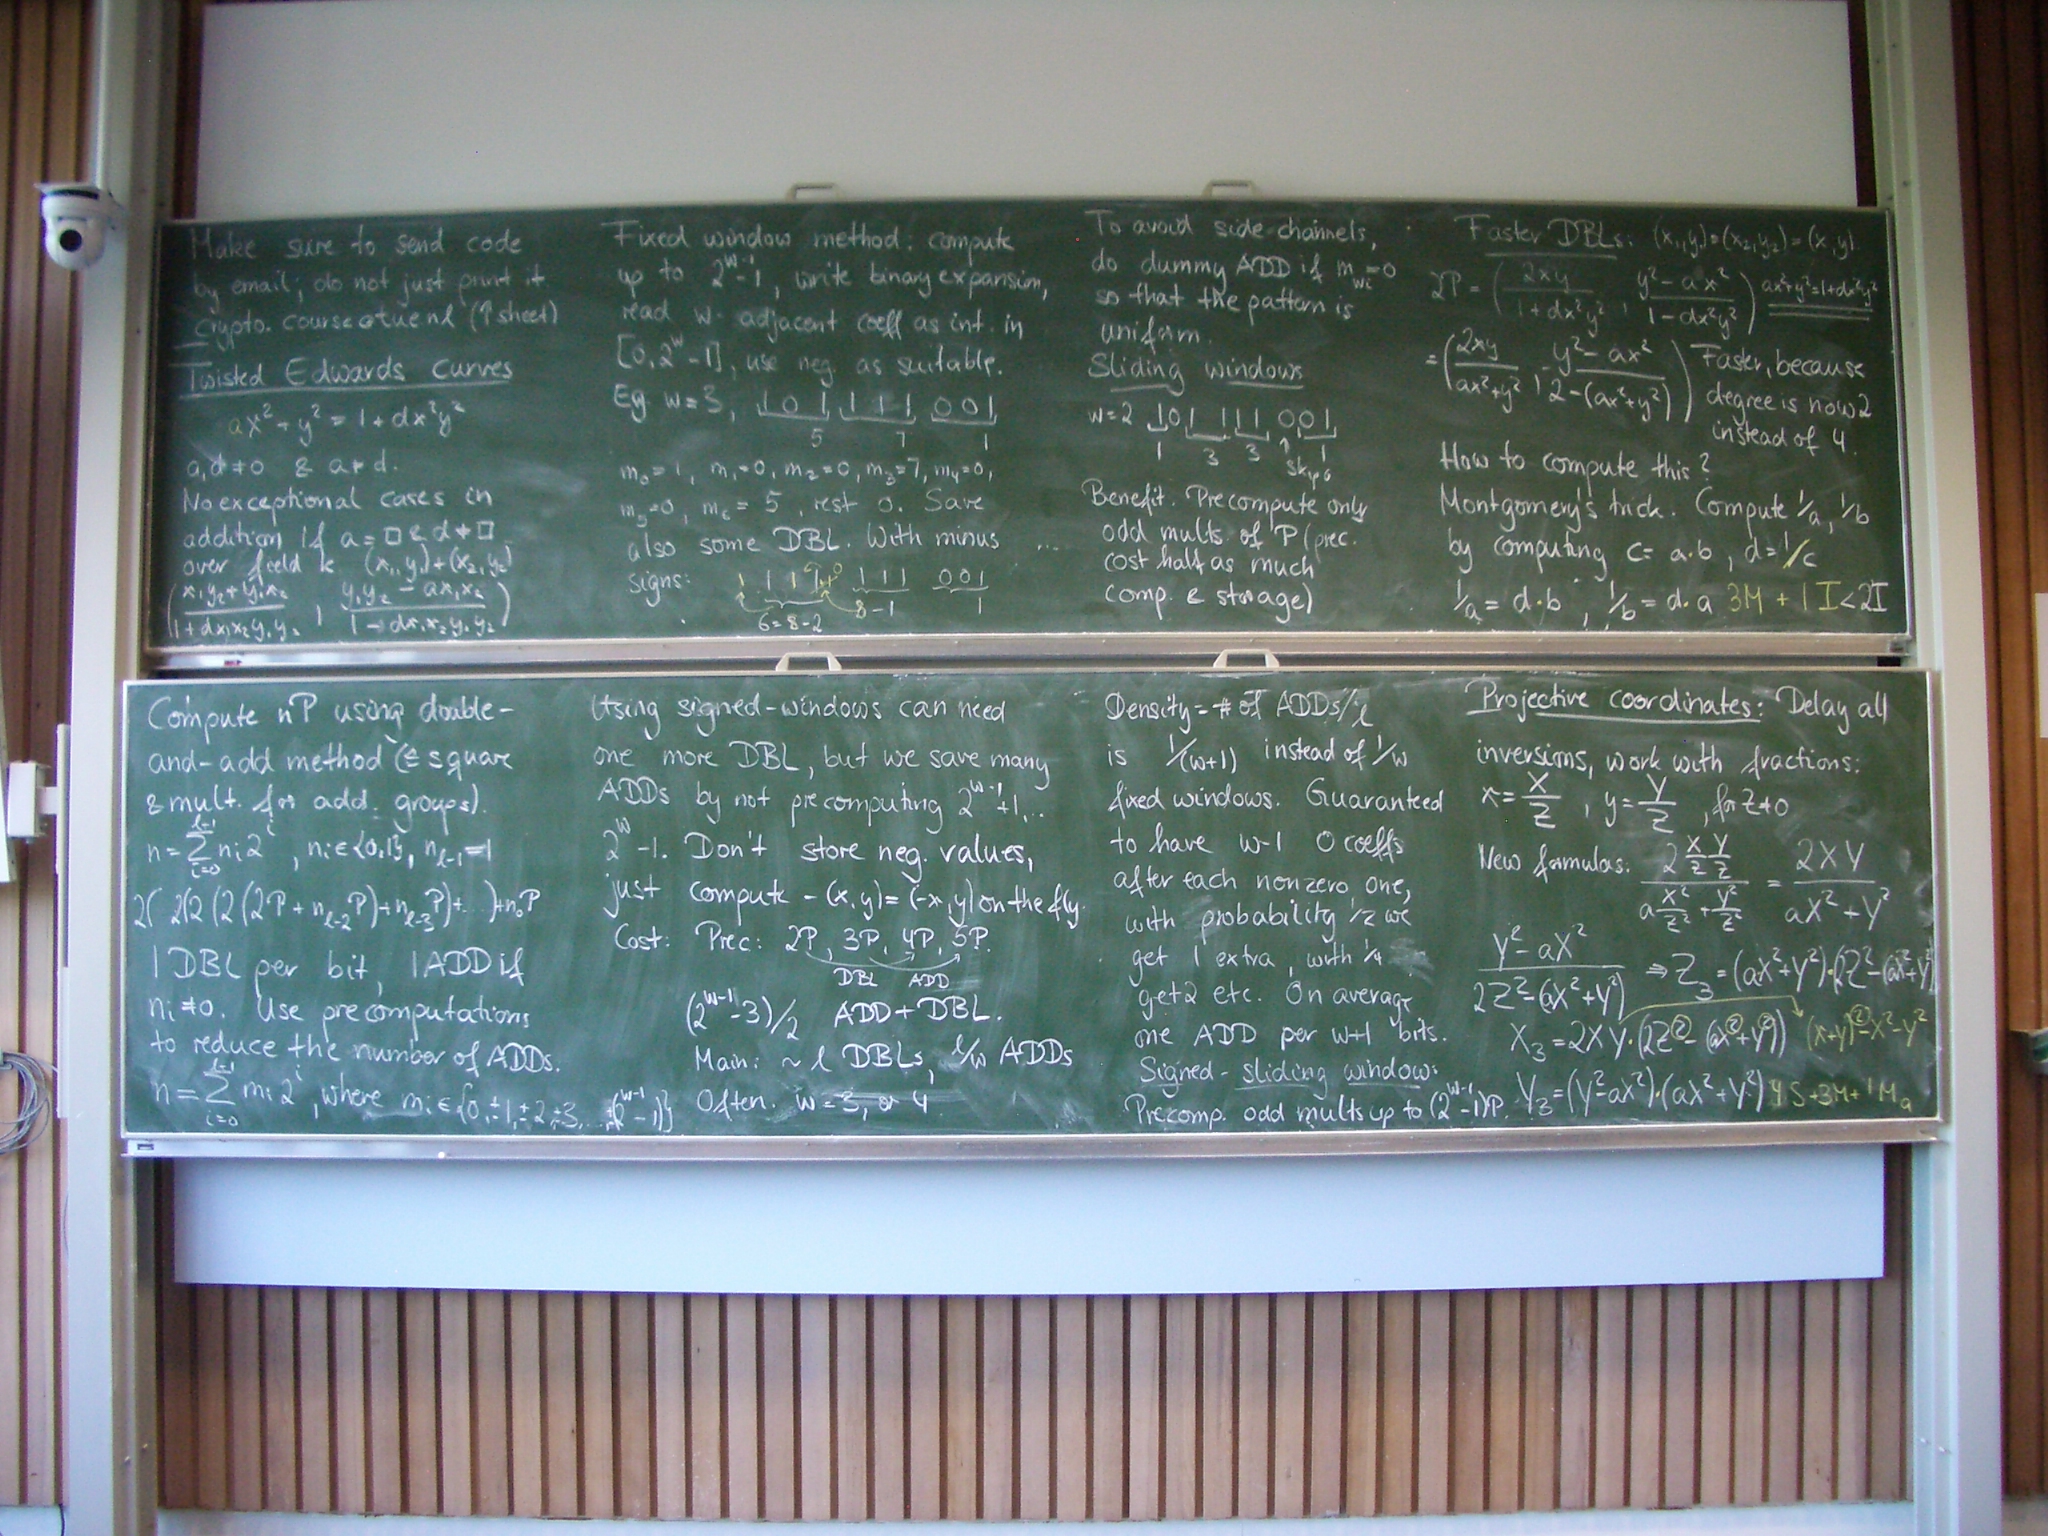 Make sure to send code
by email; do not just print it
crypto.course@tue.nl (↑sheet)
Twisted Edwards curves
ax²+y² = 1+dx²y²
a,d≠0 & a≠d.
No exceptional cases in
addition if a=□ & d≠□
over field k (x₁,y₁)+(x₂,y₂)
((x₁y₂+y₁x₂)/(1+dx₁x₂y₁y₂), (y₁y₂-ax₁x₂)/(1-dx₁x₂y₁y₂))
Fixed window method: compute
up to 2^(w-1)-1, write binary expansion,
read w adjacent coeff as int. in
[0,2^w-1], use neg. as suitable.
Eg. w=3, 101 111 001
5 7 1
m₀=1, m₁=0, m₂=0, m₃=7, m₄=0,
m₅=0, m₆=5, rest 0. Save
also some DBL. With minus ...
signs: 1 111 111 001
6=8-2 8-1 1
To avoid side-channels,
do dummy ADD if m_wi=0
so that the pattern is
uniform.
Sliding windows
w=2 101 111 001
1 3 3 skip 1
Benefit. Precompute only
odd mults. of P (prec.
cost half as much
comp. & storage)
Faster DBLs: (x₁,y₁)=(x₂,y₂)=(x,y)
2P = (2xy/(1+dx²y²), (y²-ax²)/(1-dx²y²)) ax²+y²=1+dx²y²
=(2xy/(ax²+y²), (y²-ax²)/(2-(ax²+y²))) Faster, because
degree is now 2
instead of 4.
How to compute this?
Montgomery's trick. Compute 1/a, 1/b
by computing c=a·b, d=1/c
1/a = d·b, 1/b = d·a 3M + 1I < 2I
Compute nP using double-
and-add method (≙ square
& mult. for add. groups).
n=∑_{i=0}^{ℓ-1} nᵢ2ⁱ, nᵢ∈{0,1}, n_{ℓ-1}=1
2(2(2(2(2P+n_{ℓ-2}P)+n_{ℓ-3}P)+...)+n₀P
1 DBL per bit, 1 ADD if
nᵢ≠0. Use precomputations
to reduce the number of ADDs.
n=∑_{i=0}^{ℓ-1} mᵢ2ⁱ, where mᵢ∈{0,±1,±2,±3,...,±(2^(w-1)-1)}
Using signed-windows can need
one more DBL, but we save many
ADDs by not precomputing 2^(w-1)+1,..
2^w-1. Don't store neg. values,
just compute -(x,y)=(-x,y) on the fly.
Cost: Prec: 2P, 3P, 4P, 5P.
DBL ADD
(2^(w-1)-3)/2 ADD+DBL.
Main: ~ℓ DBLs, ℓ/w ADDs
Often. w=3, or 4
Density=# of ADDs/ℓ
is 1/(w+1) instead of 1/w
fixed windows. Guaranteed
to have w-1 0 coeffs
after each nonzero one,
with probability 1/2 we
get 1 extra, with 1/4
get 2 etc. On average
one ADD per w+1 bits.
Signed-sliding window:
Precomp. odd mults up to (2^(w-1)-1)P.
Projective coordinates: Delay all
inversions, work with fractions:
x=X/Z, y=Y/Z, for Z≠0
New formulas: (2 X/Z Y/Z)/(a X²/Z² + Y²/Z²) = 2XY/(aX²+Y²)
(Y²-aX²)/(2Z²-(aX²+Y²)) ⇒ Z₃=(aX²+Y²)·(2Z²-(aX²+Y²)
X₃=2XY·(2Z²-(aX²+Y²)) (X+Y)²-X²-Y²
Y₃=(Y²-aX²)·(aX²+Y²) 4S+3M+1Mₐ